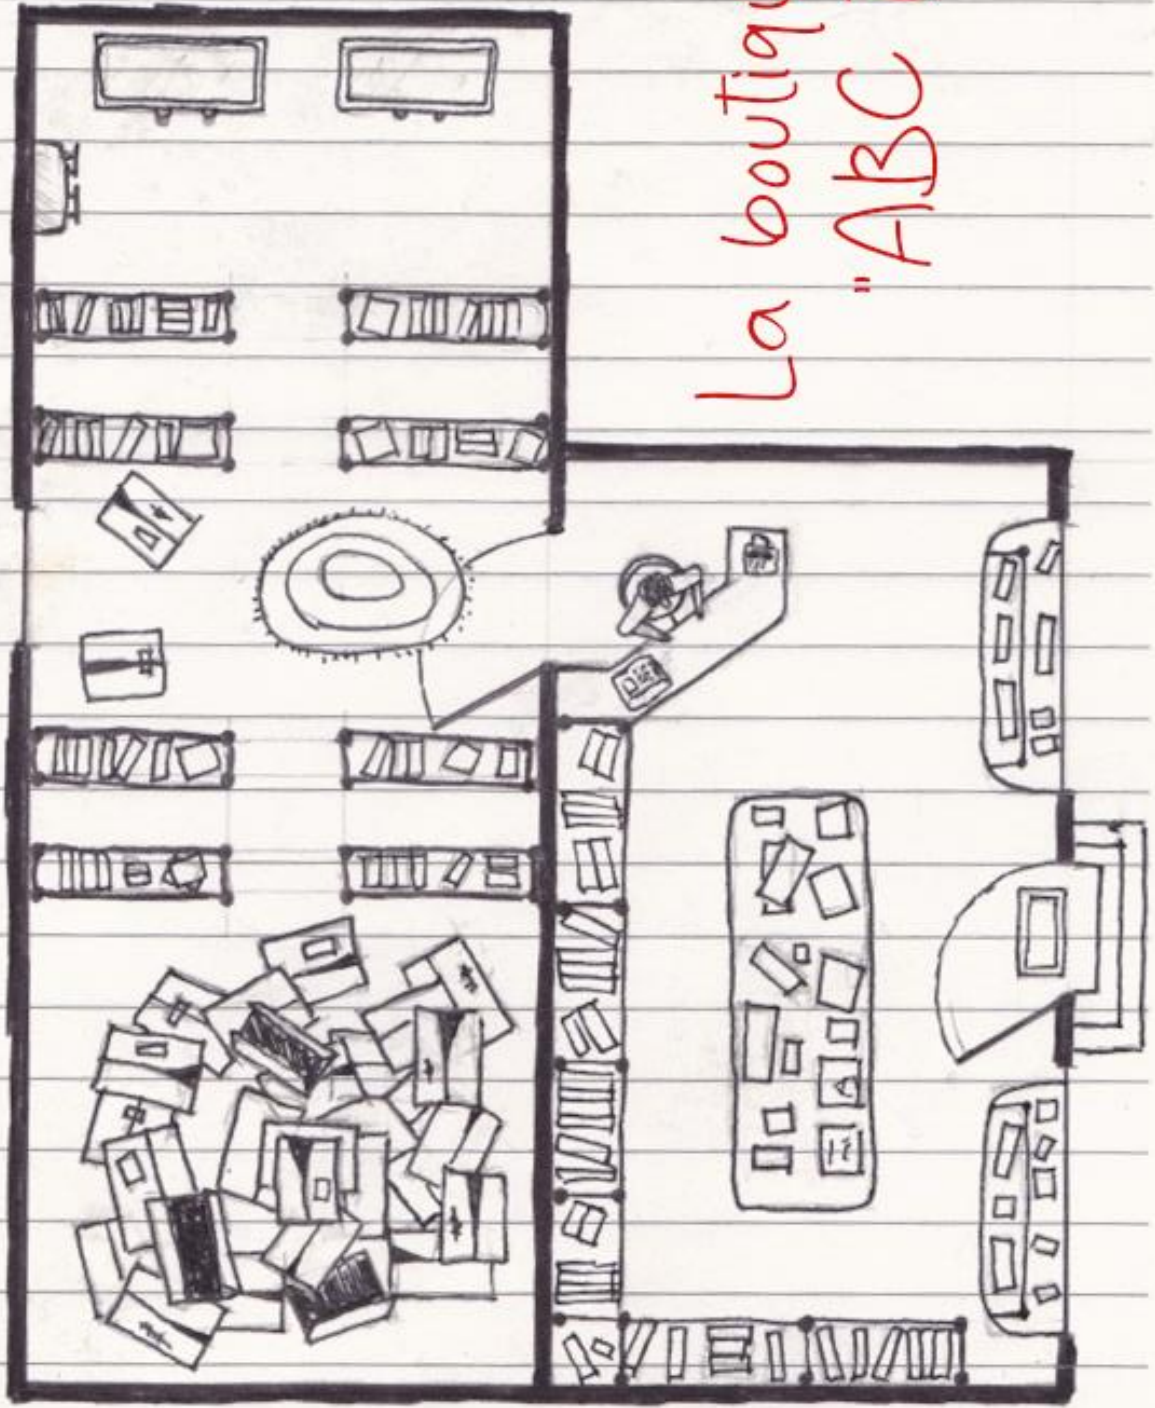 La boutiqu
"ABC